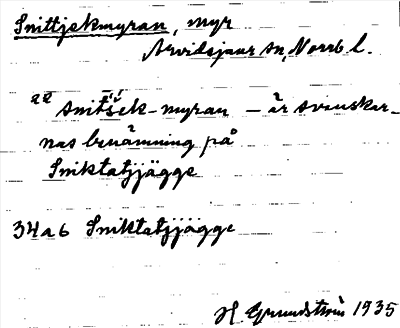 Snittjekmyran, myr
Arvidsjaur sn, Norrb l.
22 snitšek-myran – är svenskar-
nas benämning på
Sniktatjjägge
34a6 Sniktatjjägge
H Grundström 1935